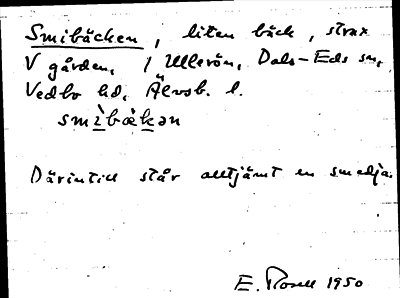 Smibäcken, liten bäck, strax
V gården, / Ullerön, Dals-Eds sn,
Vedbo hd, Älvsb. l.
smìbäkən
Därintill står alltjämt en smedja.
E. Rosell 1950